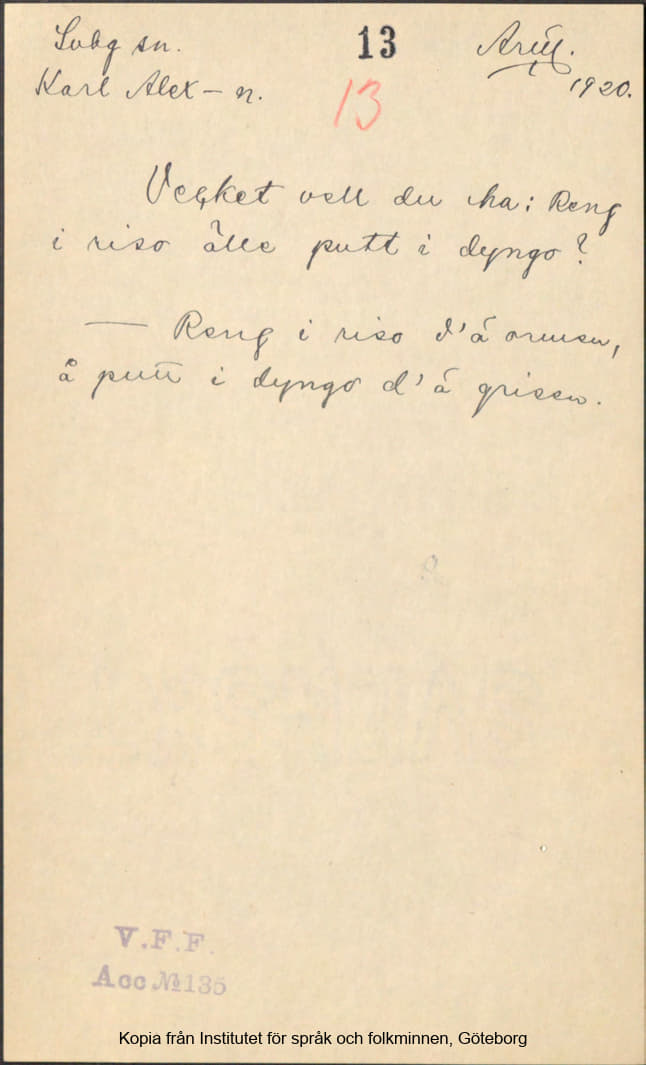 Svbg sn.
13
Karl Alex-n.
13
1920.
Veçket vell du ha: Reng
i riso älle putt i dyngo?
— Reng i riso d'á ormen,
å putt i dyngo d'á grisen.
V.F.F.
Acc.№135
Kopia från Institutet för språk och folkminnen, Göteborg